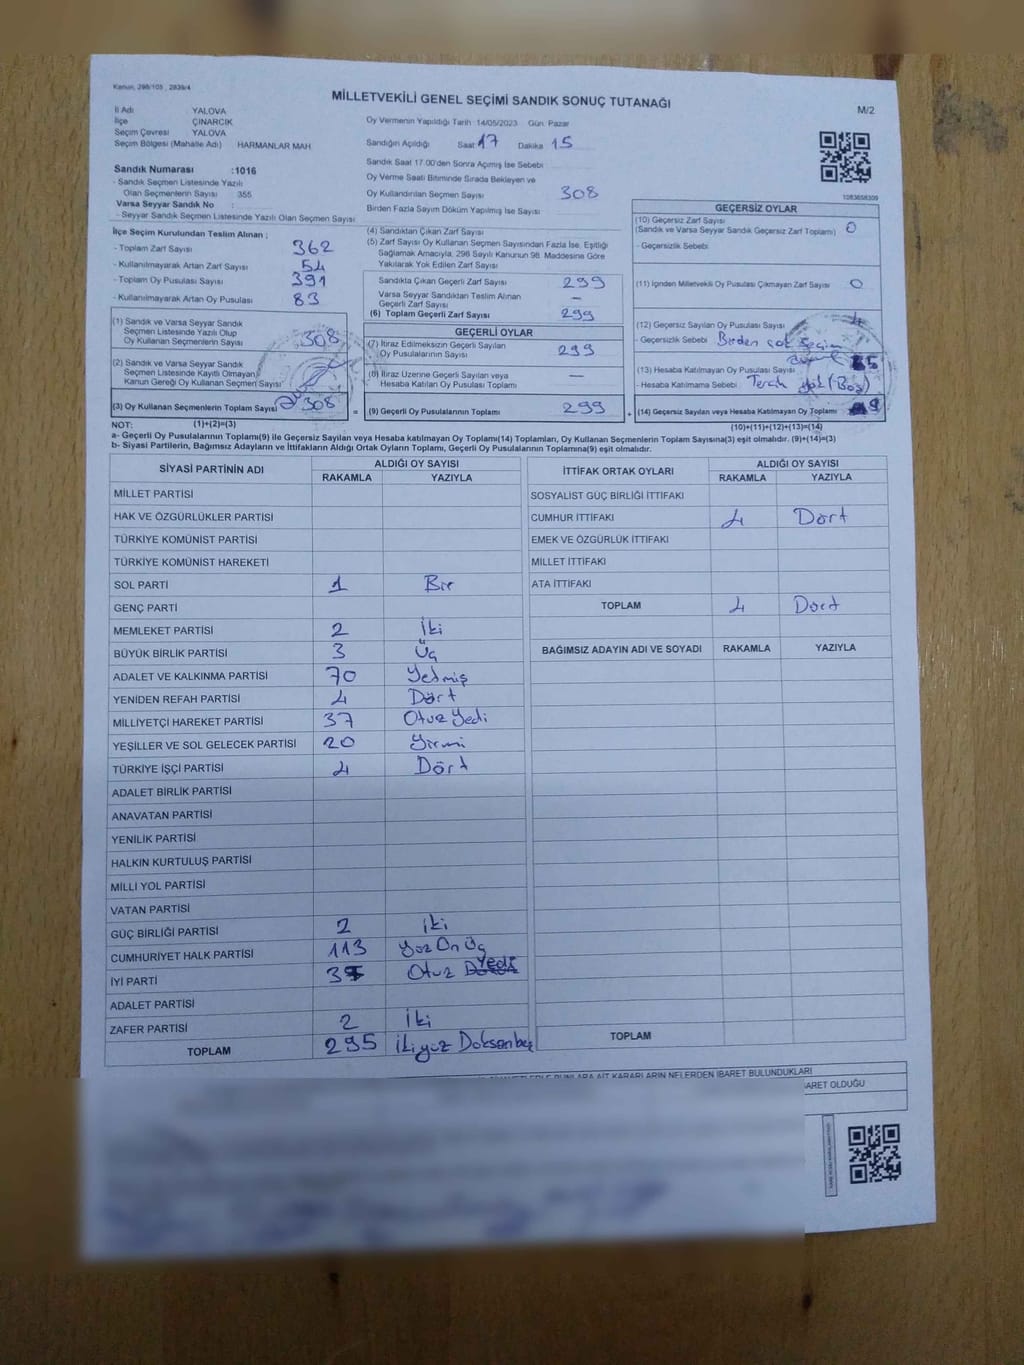 Kanun, 298/105 , 2839/4
MİLLETVEKİLİ GENEL SEÇİMİ SANDIK SONUÇ TUTANAĞI
M/2
İl Adı YALOVA
İlçe ÇINARCIK
Seçim Çevresi YALOVA
Seçim Bölgesi (Mahalle Adı) HARMANLAR MAH
Sandık Numarası :1016
- Sandık Seçmen Listesinde Yazılı
Olan Seçmenlerin Sayısı 355
Varsa Seyyar Sandık No :
- Seyyar Sandık Seçmen Listesinde Yazılı Olan Seçmen Sayısı
Oy Vermenin Yapıldığı Tarih :14/05/2023 Gün: Pazar
Sandığın Açıldığı Saat 17 Dakika 15
Sandık Saat 17.00'den Sonra Açımış İse Sebebi
Oy Verme Saati Bitiminde Sırada Bekleyen ve
Oy Kullandırılan Seçmen Sayısı 308
Birden Fazla Sayım Döküm Yapılmış İse Sayısı
1083658309
İlçe Seçim Kurulundan Teslim Alınan ;
- Toplam Zarf Sayısı 362
- Kullanılmayarak Artan Zarf Sayısı 54
- Toplam Oy Pusulası Sayısı 391
- Kullanılmayarak Artan Oy Pusulası 83
(1) Sandık ve Varsa Seyyar Sandık
Seçmen Listesinde Yazılı Olup
Oy Kullanan Seçmenlerin Sayısı 308
(2) Sandık ve Varsa Seyyar Sandık
Seçmen Listesinde Kayıtlı Olmayan
Kanun Gereği Oy Kullanan Seçmen Sayısı
(3) Oy Kullanan Seçmenlerin Toplam Sayısı 308
(4) Sandıktan Çıkan Zarf Sayısı
(5) Zarf Sayısı Oy Kullanan Seçmen Sayısından Fazla İse, Eşitliği
Sağlamak Amacıyla, 298 Sayılı Kanunun 98. Maddesine Göre
Yakılarak Yok Edilen Zarf Sayısı
Sandıkta Çıkan Geçerli Zarf Sayısı 299
Varsa Seyyar Sandıktan Teslim Alınan
Geçerli Zarf Sayısı –
(6) Toplam Geçerli Zarf Sayısı 299
GEÇERLİ OYLAR
(7) İtiraz Edilmeksizin Geçerli Sayılan
Oy Pusulalarının Sayısı 299
(8) İtiraz Üzerine Geçerli Sayılan veya
Hesaba Katılan Oy Pusulası Toplamı —
= (9) Geçerli Oy Pusulalarının Toplamı 299 +
GEÇERSİZ OYLAR
(10) Geçersiz Zarf Sayısı
(Sandık ve Varsa Seyyar Sandık Geçersiz Zarf Toplamı) 0
- Geçersizlik Sebebi
(11) İçinden Milletvekili Oy Pusulası Çıkmayan Zarf Sayısı 0
(12) Geçersiz Sayılan Oy Pusulası Sayısı 4
- Geçersizlik Sebebi Birden çok seçim
(13) Hesaba Katılmayan Oy Pusulası Sayısı 5
- Hesaba Katılmama Sebebi Tercih yok (Boş)
(14) Geçersiz Sayılan veya Hesaba Katılmayan Oy Toplamı 9
NOT: (1)+(2)=(3)
(10)+(11)+(12)+(13)=(14)
a- Geçerli Oy Pusulalarının Toplamı(9) ile Geçersiz Sayılan veya Hesaba katılmayan Oy Toplamı(14) Toplamları, Oy Kullanan Seçmenlerin Toplam Sayısına(3) eşit olmalıdır. (9)+(14)=(3)
b- Siyasi Partilerin, Bağımsız Adayların ve İttifakların Aldığı Ortak Oyların Toplamı, Geçerli Oy Pusulalarının Toplamına(9) eşit olmalıdır.
SİYASİ PARTİNİN ADI ALDIĞI OY SAYISI
RAKAMLA YAZIYLA
MİLLET PARTİSİ
HAK VE ÖZGÜRLÜKLER PARTİSİ
TÜRKİYE KOMÜNİST PARTİSİ
TÜRKİYE KOMÜNİST HAREKETİ
SOL PARTİ 1 Bir
GENÇ PARTİ
MEMLEKET PARTİSİ 2 İki
BÜYÜK BİRLİK PARTİSİ 3 Üç
ADALET VE KALKINMA PARTİSİ 70 Yetmiş
YENİDEN REFAH PARTİSİ 4 Dört
MİLLİYETÇİ HAREKET PARTİSİ 37 Otuz Yedi
YEŞİLLER VE SOL GELECEK PARTİSİ 20 Yirmi
TÜRKİYE İŞÇİ PARTİSİ 4 Dört
ADALET BİRLİK PARTİSİ
ANAVATAN PARTİSİ
YENİLİK PARTİSİ
HALKIN KURTULUŞ PARTİSİ
MİLLİ YOL PARTİSİ
VATAN PARTİSİ
GÜÇ BİRLİĞİ PARTİSİ 2 İki
CUMHURİYET HALK PARTİSİ 113 Yüz On Üç
İYİ PARTİ 37 Otuz Yedi
ADALET PARTİSİ
ZAFER PARTİSİ 2 İki
TOPLAM 295 İkiyüz Doksanbeş
İTTİFAK ORTAK OYLARI ALDIĞI OY SAYISI
RAKAMLA YAZIYLA
SOSYALİST GÜÇ BİRLİĞİ İTTİFAKI
CUMHUR İTTİFAKI 4 Dört
EMEK VE ÖZGÜRLÜK İTTİFAKI
MİLLET İTTİFAKI
ATA İTTİFAKI
TOPLAM 4 Dört
BAĞIMSIZ ADAYIN ADI VE SOYADI RAKAMLA YAZIYLA
TOPLAM
BUNLARA AİT KARARLARIN NELERDEN İBARET BULUNDUKLARI
OLDUĞU